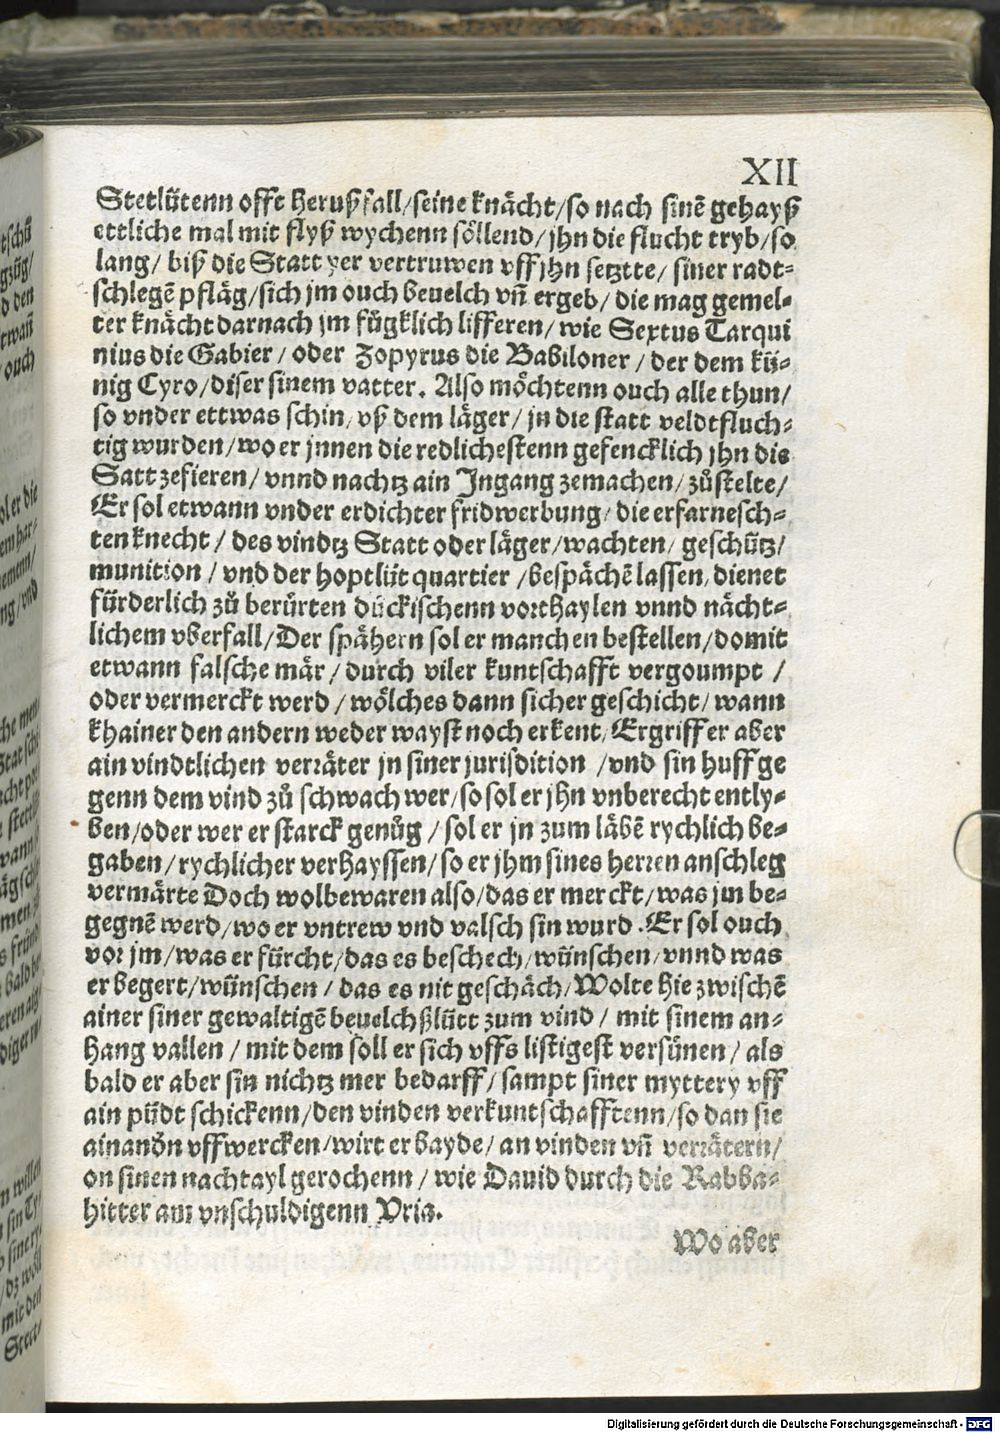 XII
Stetlütenn offt herußfall/seine knächt/so nach sinẽ gehayß
ettliche mal mit flyß wychenn söllend/jhn die flucht tryb/so
lang/ biß die Statt yer vertruwen vff jhn setztte/ siner radt-
schlegẽ pfläg/sich jm ouch beuelch vñ ergeb/ die mag gemel-
ter knächt darnach jm fůgklich lifferen/ wie Sextus Tarqui
nius die Gabier/ oder Zopyrus die Babiloner/ der dem kü-
nig Cyro/diser sinem vatter. Also möchtenn ouch alle thun/
so vnder ettwas schin/ vß dem läger/ jn die statt veldtfluch-
tig wurden/wo er jnnen die redlichestenn gefencklich jhn die
Satt zefieren/ vnnd nachtz ain Jngang zemachen/ zůstelte/
Er sol etwann vnder erdichter fridwerbung/ die erfarnesch-
ten knecht/ des vindtz Statt oder läger/wachten/ geschütz/
munition/ vnd der hoptlüt quartier/bespächẽ lassen/ dienet
fürderlich zů berürten dückischenn vorthaylen vnnd nächt-
lichem vberfall/Der spähern sol er manchen bestellen/domit
etwann falsche mär/ durch viler kuntschafft vergoumpt/
oder vermerckt werd/ wölches dann sicher geschicht/ wann
khainer den andern weder wayst noch erkent/ Ergriff er aber
ain vindtlichen verräter jn siner jurisdition/vnd sin huff ge
genn dem vind zů schwach wer/so sol er jhn vnberecht ently-
ben/oder wer er starck genůg/ sol er jn zum läbẽ rychlich be-
gaben/rychlicher verhayssen/so er jhm sines herren anschleg
vermärte Doch wolbewaren also/das er merckt/was jm be-
gegnẽ werd/wo er vntrew vnd valsch sin wurd. Er sol ouch
vor jm/was er fürcht/das es beschech/wünschen/vnnd was
er begert/wünschen/ das es nit geschäch/Wolte hie zwischẽ
ainer siner gewaltigẽ beuelchßlütt zum vind/ mit sinem an-
hang vallen/ mit dem soll er sich vffs listigest versünen/ als
bald er aber sin nichtz mer bedarff/ sampt siner myttery vff
ain püdt schickenn/den vinden verkuntschafftenn/so dan sie
ainanðn vffwercken/wirt er bayde/an vinden vñ verrätern/
on sinen nachtayl gerochenn/ wie Dauid durch die Rabba-
hitter am vnschuldigenn Vria.
Wo aber
Digitalisierung gefördert durch die Deutsche Forschungsgemeinschaft - DFG